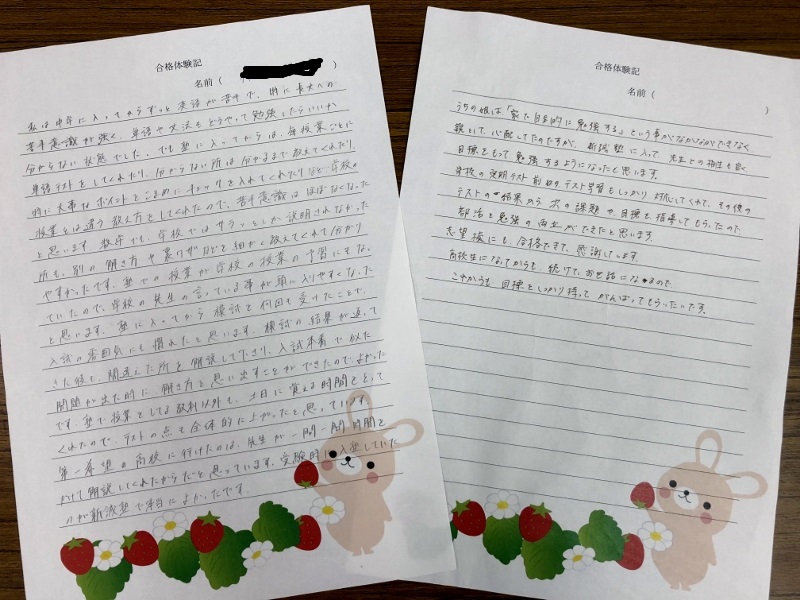 合格体験記
名前（ ）
私は中学に入ってからずっと英語が苦手で、特に長文への
苦手意識が強く、単語や文法もどうやって勉強したらいいか
分からない状態でした。でも塾に入ってからは、毎授業ごとに
単語テストをしてくれたり、分からない所は分かるまで教えてくれたり、
特に大事なポイントをこまめにチェックを入れてくれたりなど学校の
授業とは違う教え方をしてくれたので、苦手意識はほぼなくなった
と思います。数学でも、学校ではサラッとしか説明されなかった
所も、別の解き方や裏ワザなどを細かく教えてくれて分かり
やすかったです。塾での授業が学校の授業の予習にもな
っていたので、学校の先生の言っている事が頭に入りやすくなった
と思います。塾に入ってから模試を何回も受けたことで、
入試の雰囲気にも慣れたと思います。模試の結果が返って
きた後も、間違えた所を解説して下さり、入試本番で似た
問題が出た時に解き方を思い出すことができたので、よかった
です。塾で授業をしてる教材以外も、土日に覚える時間をとって
くれたので、テストの点も全体的に上がったと思っています。
第一希望の高校に行けたのは、先生が一問一問時間を
かけて解説してくれたからだと思っています。受験時に入塾していた
のが新誠塾で本当によかったです。
合格体験記
名前（ ）
うちの娘は「家で自主的に勉強する」という事がなかなかできなく
親として、心配してたのですが、新誠塾に入って、先生との相性も良く
目標をもって勉強するようになったと思います。
学校の定期テスト前のテスト学習もしっかり対応してくれて、その後の
テストの結果から次の課題や目標を指導してもらったので
部活と勉強の両立ができたと思います。
志望校にも、合格できて、感謝してます。
高校生になってからも続けて、お世話になるので、
これからも目標をしっかり持ってがんばってもらいたいです。